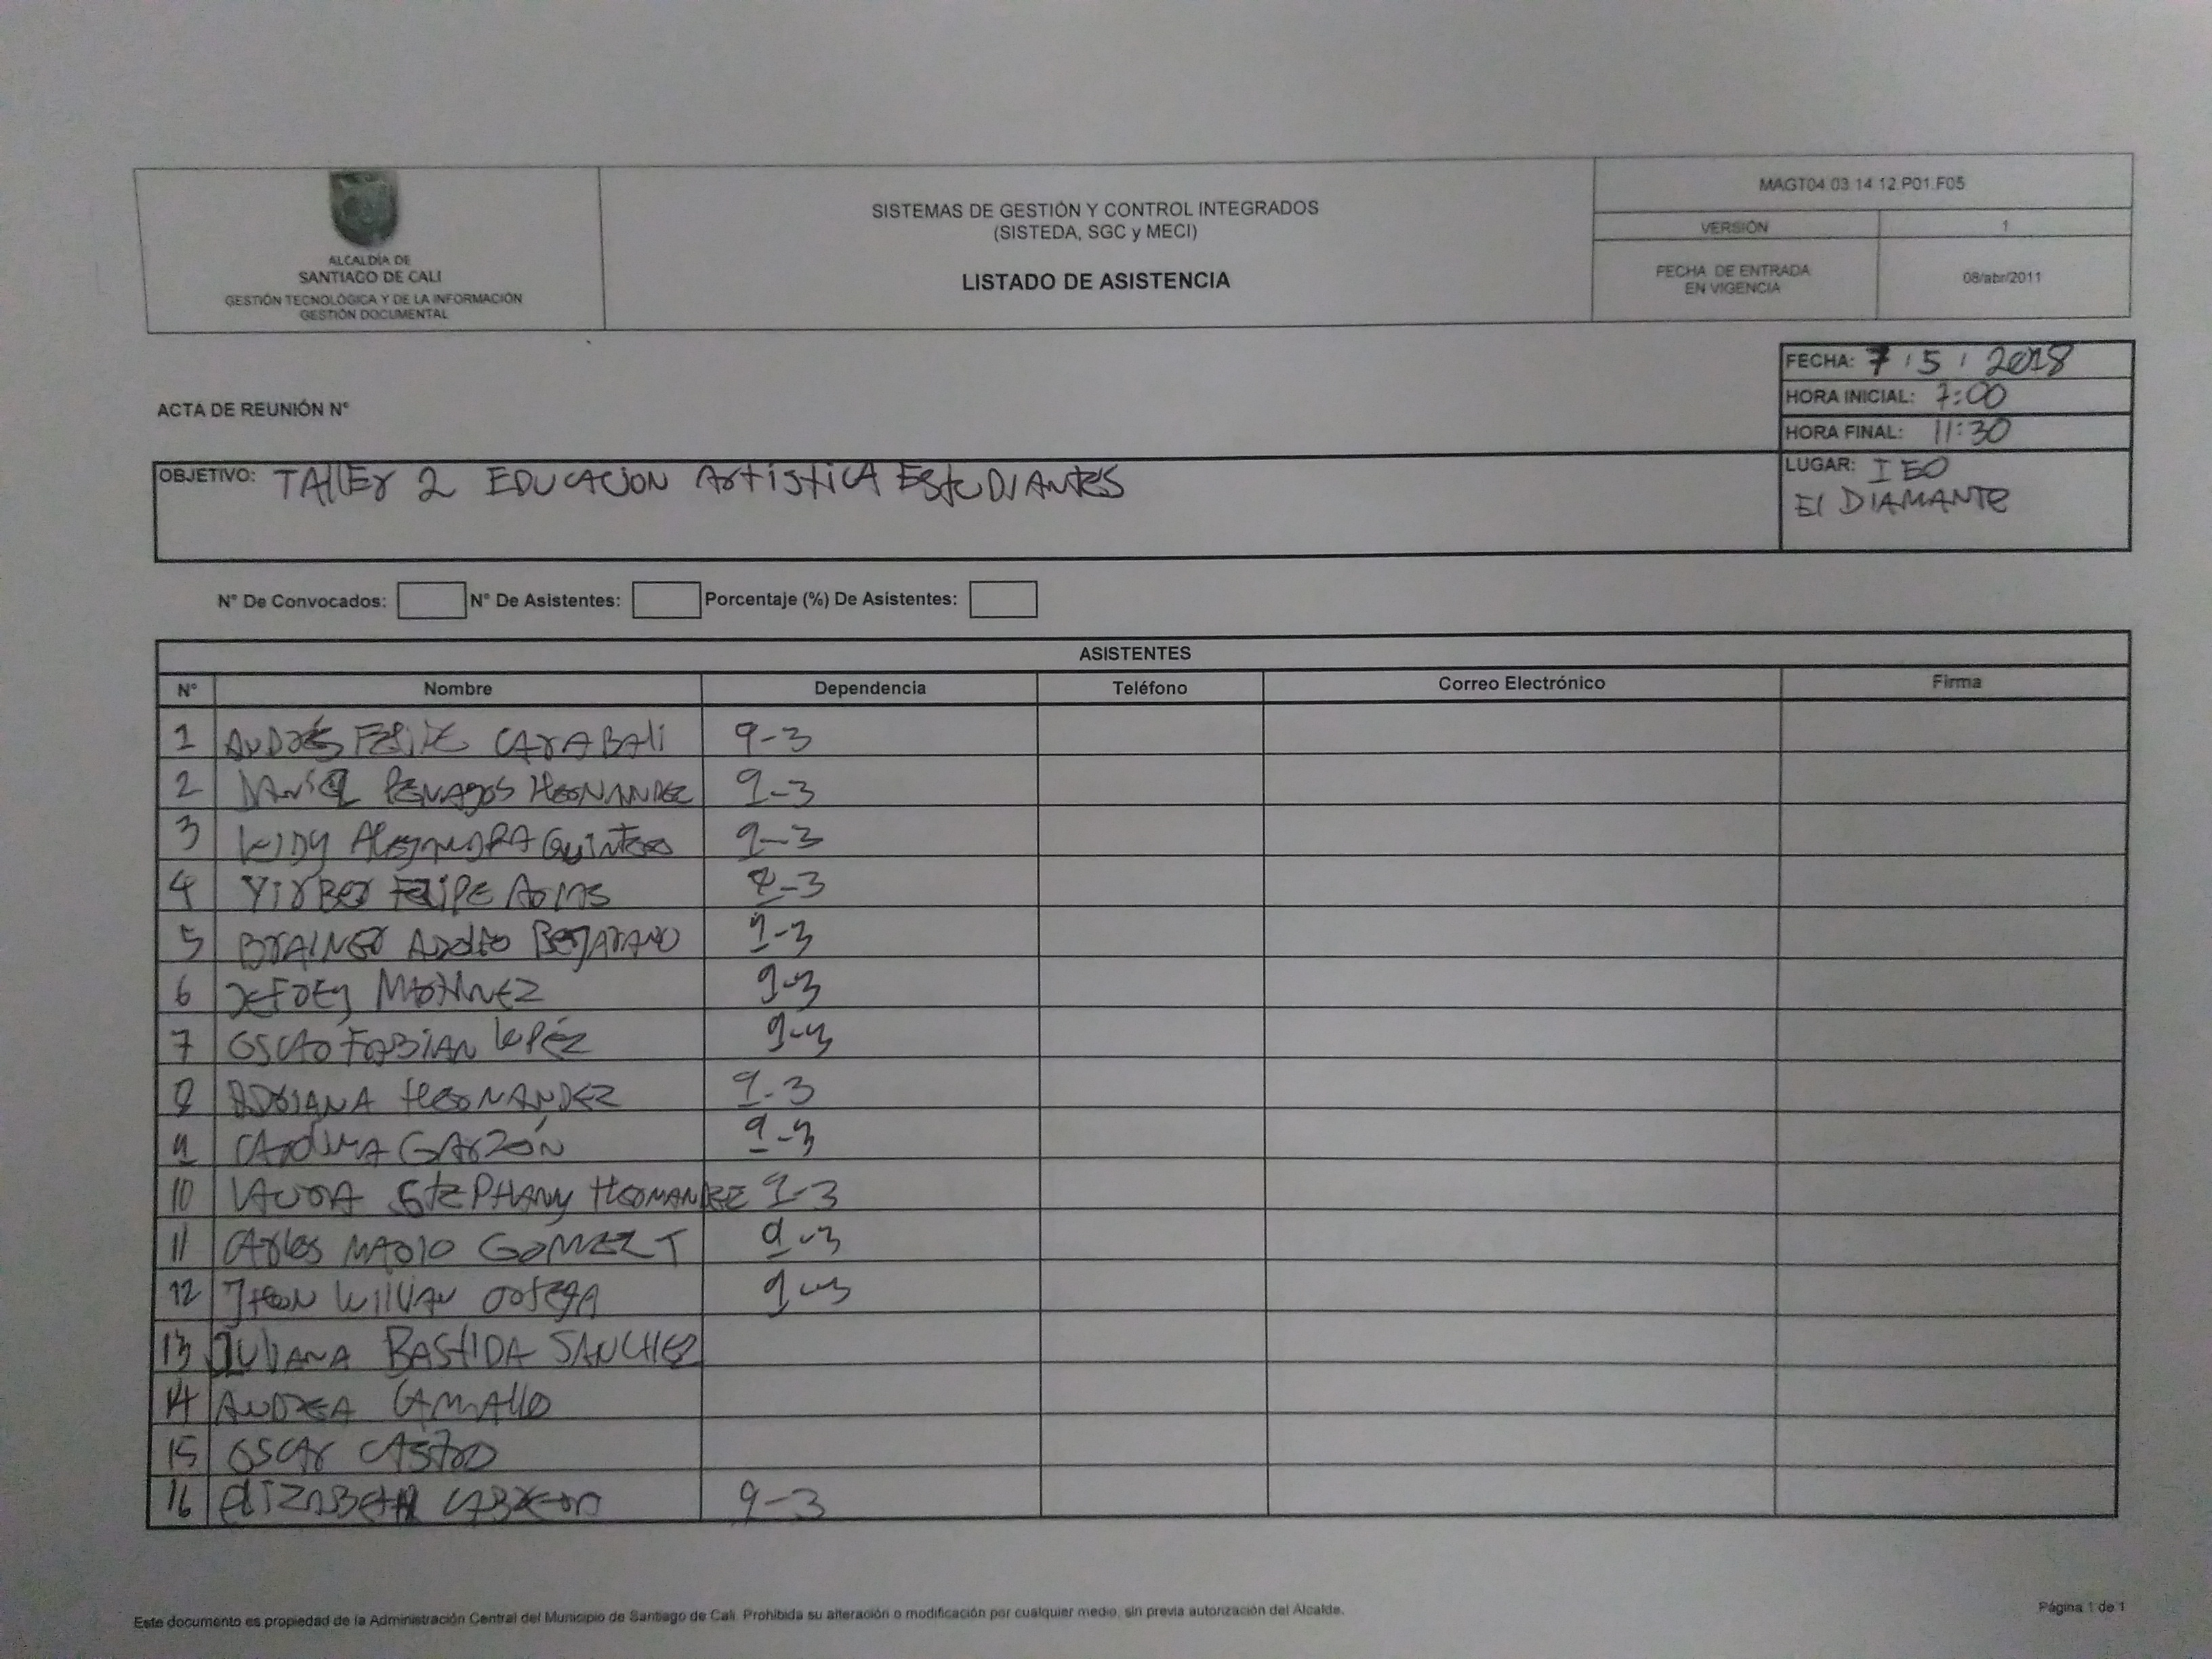 ALCALDÍA DE
SANTIAGO DE CALI
GESTIÓN TECNOLÓGICA Y DE LA INFORMACIÓN
GESTIÓN DOCUMENTAL
SISTEMAS DE GESTIÓN Y CONTROL INTEGRADOS
(SISTEDA, SGC y MECI)
LISTADO DE ASISTENCIA
MAGT04.03.14.12.P01.F05
VERSIÓN 1
FECHA DE ENTRADA
EN VIGENCIA
08/abr/2011
ACTA DE REUNIÓN N°
FECHA: 7 / 5 / 2018
HORA INICIAL: 7:00
HORA FINAL: 11:30
OBJETIVO: TAllEr 2 EDUCACION ArtisticA EstuDIANtES
LUGAR: IEO
El DIAMANTE
N° De Convocados: N° De Asistentes: Porcentaje (%) De Asistentes:
ASISTENTES
N° Nombre Dependencia Teléfono Correo Electrónico Firma
1 ANDrés FElipE CArABAli 9-3
2 DANiEl PENAgos HErNANDEZ 9-3
3 AlEjANDRA QuiNtEro 9-3
4 YirBEr FElipE 9-3
5 BrAiNEr ADolfo BEjArANO 9-3
6 MArtiNEZ 9-3
7 OSCAr FABIAN lopéz 9-3
8 ADriANA HErNANDEZ 9-3
9 CArOliNA GArZóN 9-3
10 lAUrA StEPHANy HErNANDEZ 9-3
11 CArlos MArio GOMEZ T 9-3
12 JHON WilliAN OrtEgA 9-3
13 JUliANA BAStIDA SANCHEZ
14 ANDrEA
15 OSCAr CAStrO
16 EliZABEtH CABrErA 9-3
Este documento es propiedad de la Administración Central del Municipio de Santiago de Cali. Prohibida su alteración o modificación por cualquier medio, sin previa autorización del Alcalde.
Página 1 de 1